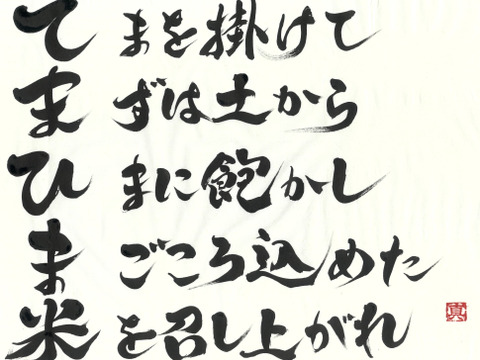 てまを掛けて
まずは土から
ひまに飽かし
まごころ込めた
米を召し上がれ